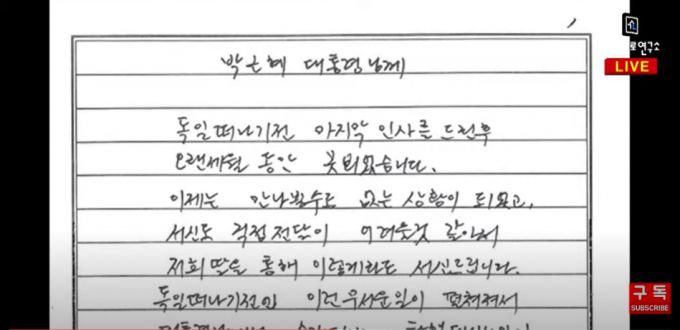 박근혜 대통령님께
독일떠나기전 마지막 인사를 드린후
오랜세월 동안 못뵈었습니다.
이제는 만나뵐수도 없는 상황이 되었고,
서신도 직접전달이 어려울것 같아서
저희 딸을 통해 이렇게라도 서신드립니다.
독일떠나기전에 이런무서운일이 펼쳐져서
로연구소
LIVE
구독
SUBSCRIBE